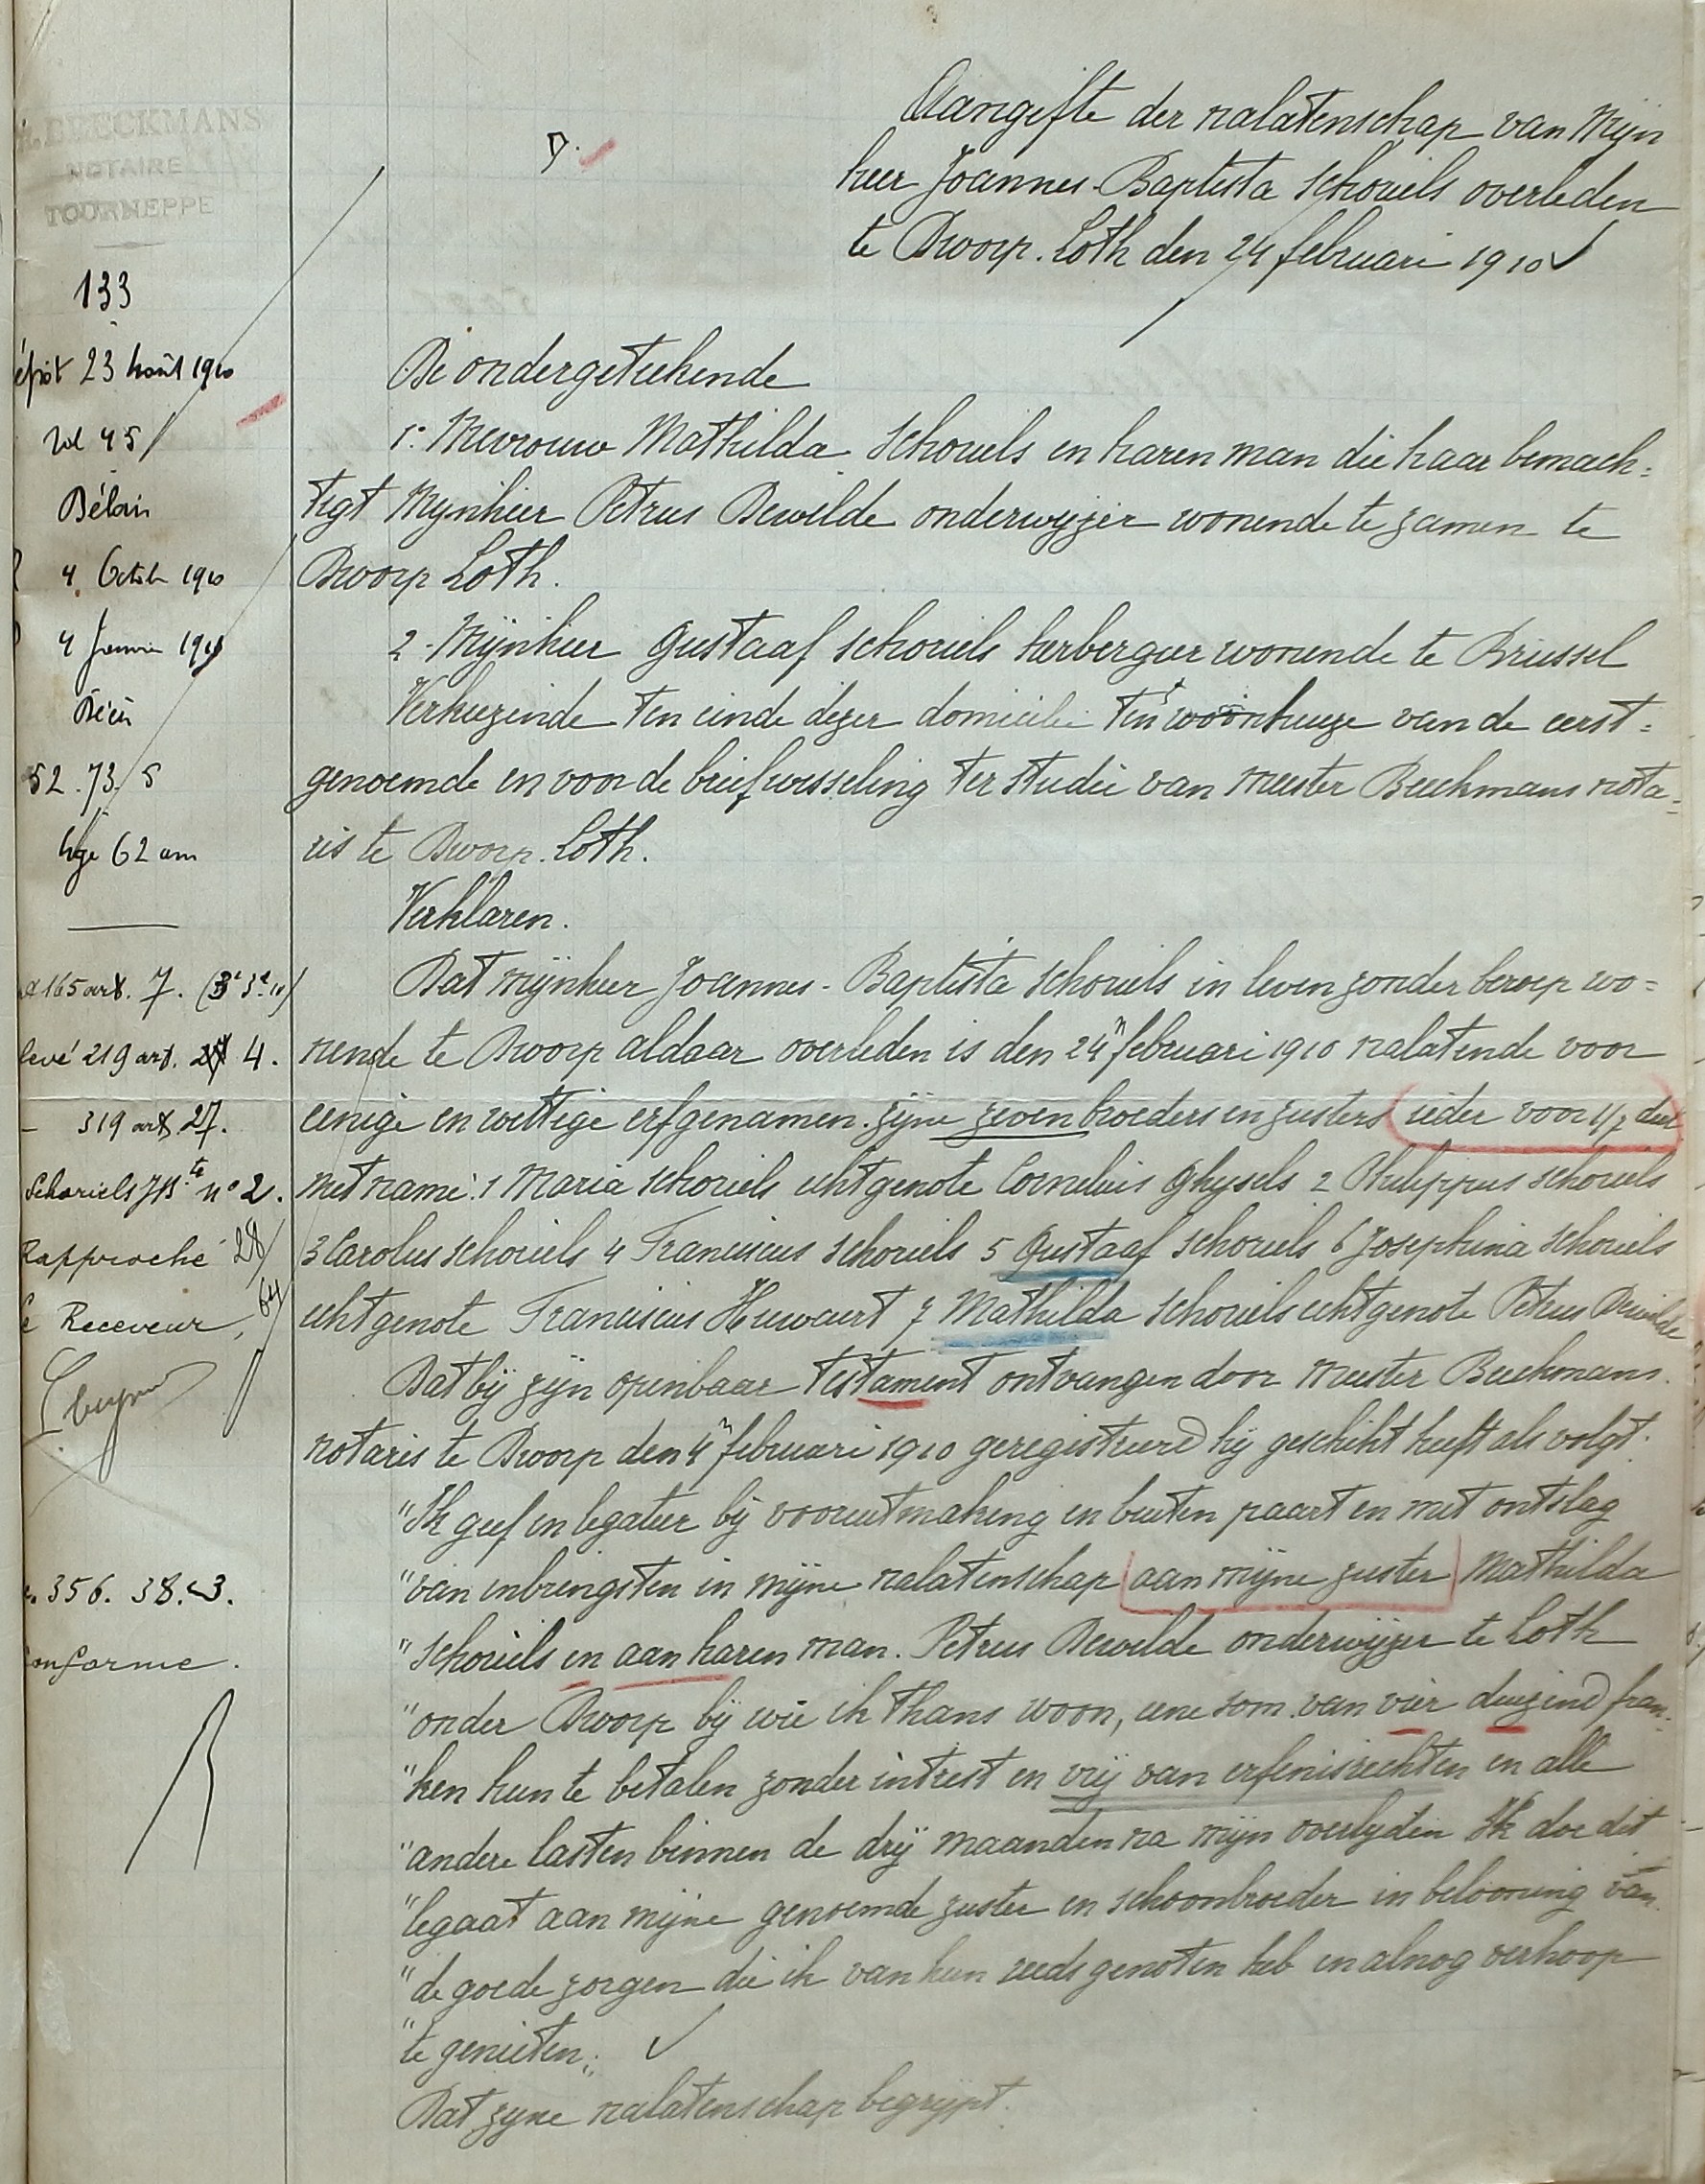 BEECKMANS
NOTAIRE
TOURNEPPE
Aangifte der nalatenschap van Mijn
heer Joannes-Baptista Schoriels overleden
te Dworp. Loth den 24 februari 1910
133
23 août 1910
vol 45
Délai
4 Octob 1910
4 Janvier 191
Décès
52.73.5
âgé 62 ans
165 art. 7.
levé 219 art. 4.
- 319 art 27.
Schoriels JBte n° 2.
Rapproché 28/
64
Receveur,
356. 38.
conforme.
De ondergeteekende
1° Mevrouw Mathilda Schoriels en haren man die haar bemach=
tigt Mynheer Petrus Dewilde onderwyzer wonende te zamen te
Dworp Loth.
2 - Mijnheer Gustaaf Schoriels herbergier wonende te Brussel
Verkiezende ten einde dezer domicilie ten woonhuize van de eerst=
genoemde en voor de briefwisseling ter studie van Meester Beeckmans nota=
ris te Dworp. Loth.
Verklaren.
Dat mijnheer Joannes-Baptista Schoriels in leven zonder beroep wo=
nende te Dworp aldaar overleden is den 24n februari 1910 nalatende voor
eenige en wettige erfgenamen zijne zeven broeders en zusters ieder voor 1/7 deel
met name: 1 Maria Schoriels echtgenote Cornelius Ghysels 2 Philippus Schoriels
3 Carolus Schoriels 4 Franciscus Schoriels 5 Gustaaf Schoriels 6 Josephina Schoriels
echtgenote Franciscus Huwaert 7 Mathilda Schoriels echtgenote Petrus Dewilde
Dat bij zijn openbaar testament ontvangen door Meester Beeckmans.
notaris te Dworp den 4n februari 1910 geregistreerd hij geschikt heeft als volgt:
"Ik geef en legateer bij vooruitmaking en buiten paart en met ontslag
"van inbrengsten in mijne nalatenschap aan mijne zuster Mathilda
"Schoriels en aan haren man. Petrus Dewilde onderwijzer te Loth
"onder Dworp bij wie ik thans woon, eene som van vier duizend fran-
"ken hun te betalen zonder intrest en vrij van erfenisrechten en alle
"andere lasten binnen de drij maanden na mijn overlyden Ik doe dit
"legaat aan mijne genoemde zuster en schoonbroeder in belooning van
"de goede zorgen die ik van hun reeds genoten heb en alnog verhoop
"te genieten;
Dat zyne nalatenschap begrypt.